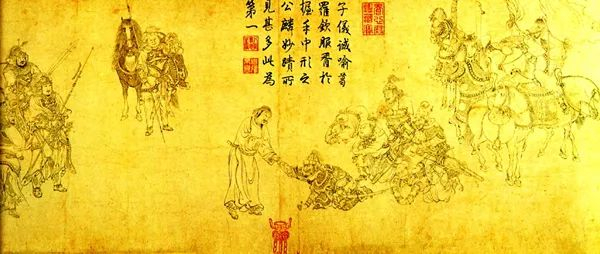 子儀誠喻葛
羅欽服胥於
握手中形之
公麟妙蹟所
見甚多此為
第一